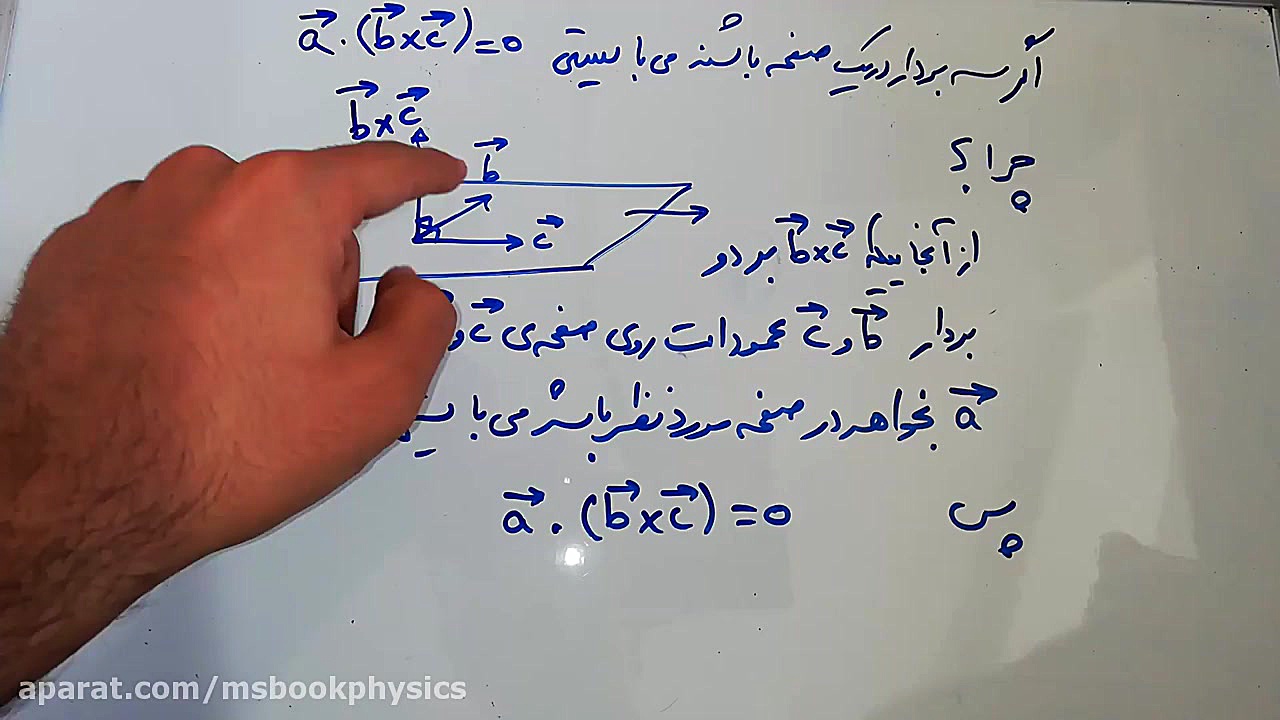 اگر سه بردار در یک صفحه باشند می بایستی a⃗ . (b⃗ × c⃗) = 0
چرا؟
b⃗ × c⃗
b⃗
c⃗
از آنجاییکه b⃗ × c⃗ بر دو
بردار b⃗ و c⃗ عمود است روی صفحه‌ی c⃗ و
a⃗ بخواهد در صفحه مورد نظر باشد می بایستی
پس a⃗ . (b⃗ × c⃗) = 0
aparat.com/msbookphysics